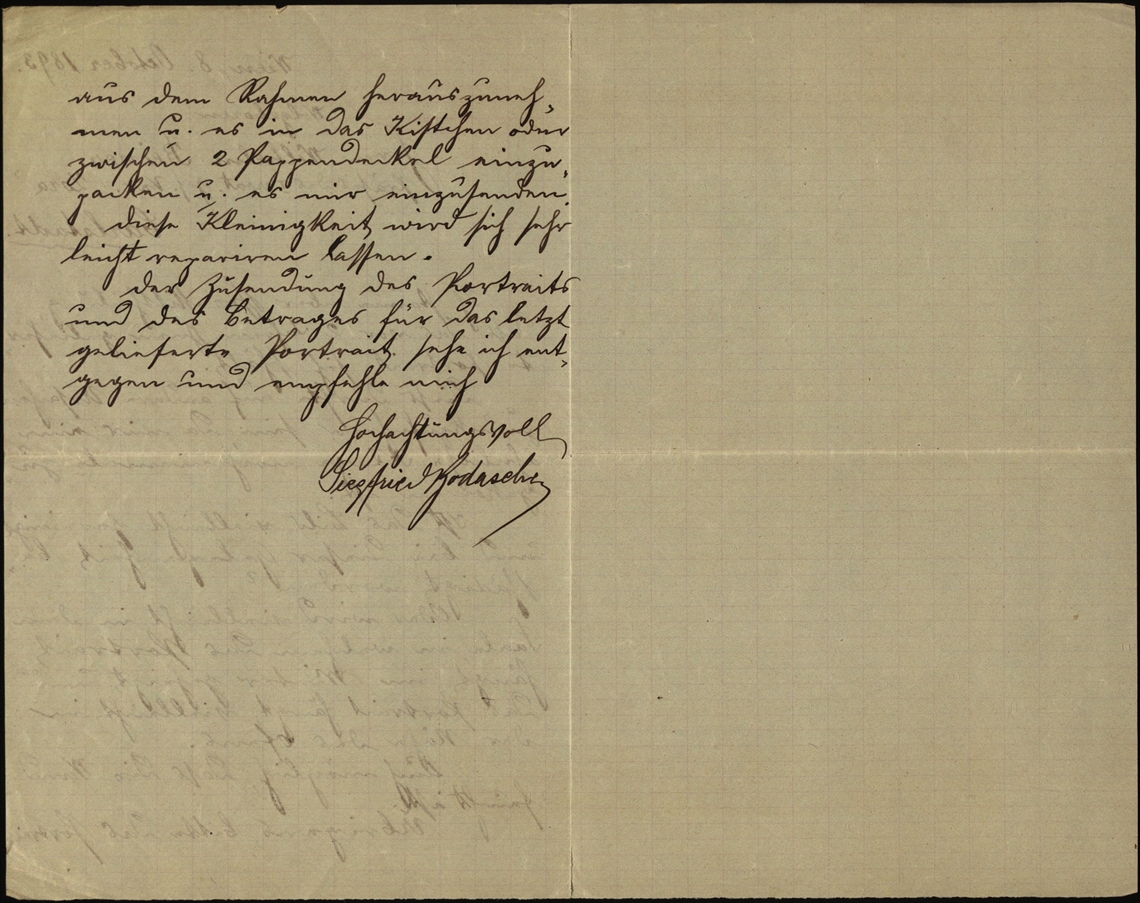 aus dem Rahmen herauszuneh-
men u. es in das Kistchen oder
zwischen 2 Pappendeckel einzu-
packen u. es mir einzusenden.
Diese Kleinigkeit wird sich sehr
leicht repariren lassen.
Der Zusendung des Portraits
und des Betrages für das letzt
gelieferte Portrait sehe ich ent-
gegen und empfehle mich
Hochachtungsvoll
Siegfried Bodascher